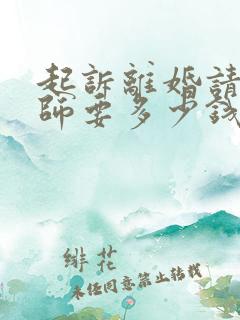 起訴離婚請
師要多少錢
緋花
未经同意禁止转载